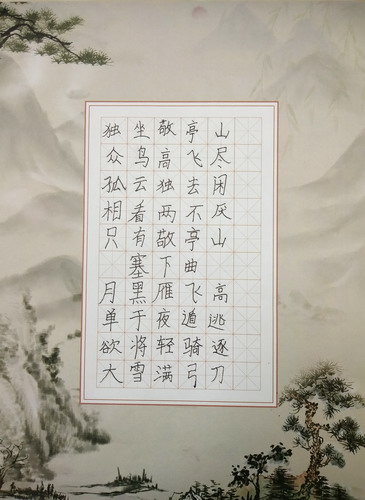 独坐敬亭山
众鸟高飞尽
孤云独去闲
相看两不厌
只有敬亭山
塞下曲
月黑雁飞高
单于夜遁逃
欲将轻骑逐
大雪满弓刀